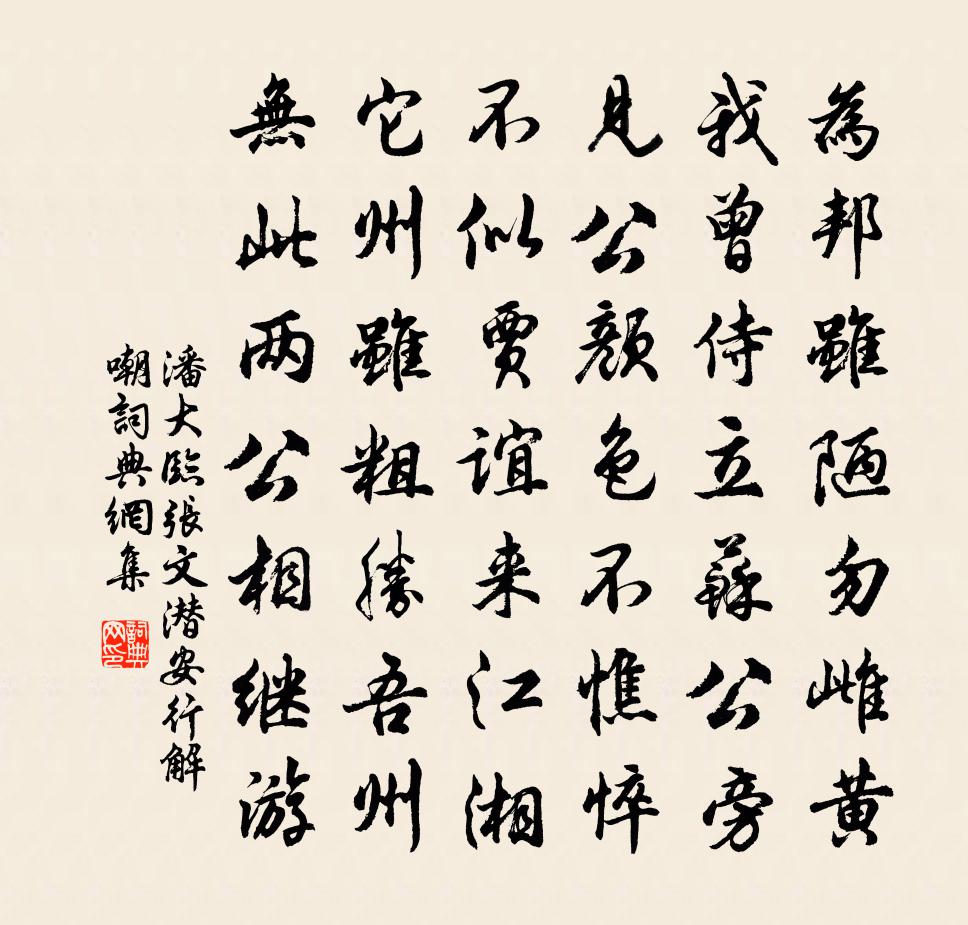 為邦雖陋勿雌黄
我曾侍立蘇公旁
見公顏色不憔悴
不似賈誼来江湘
它州雖粗勝吾州
無此两公相继游
潘大臨張文潜安行解
嘲詞典網集
詞典网印